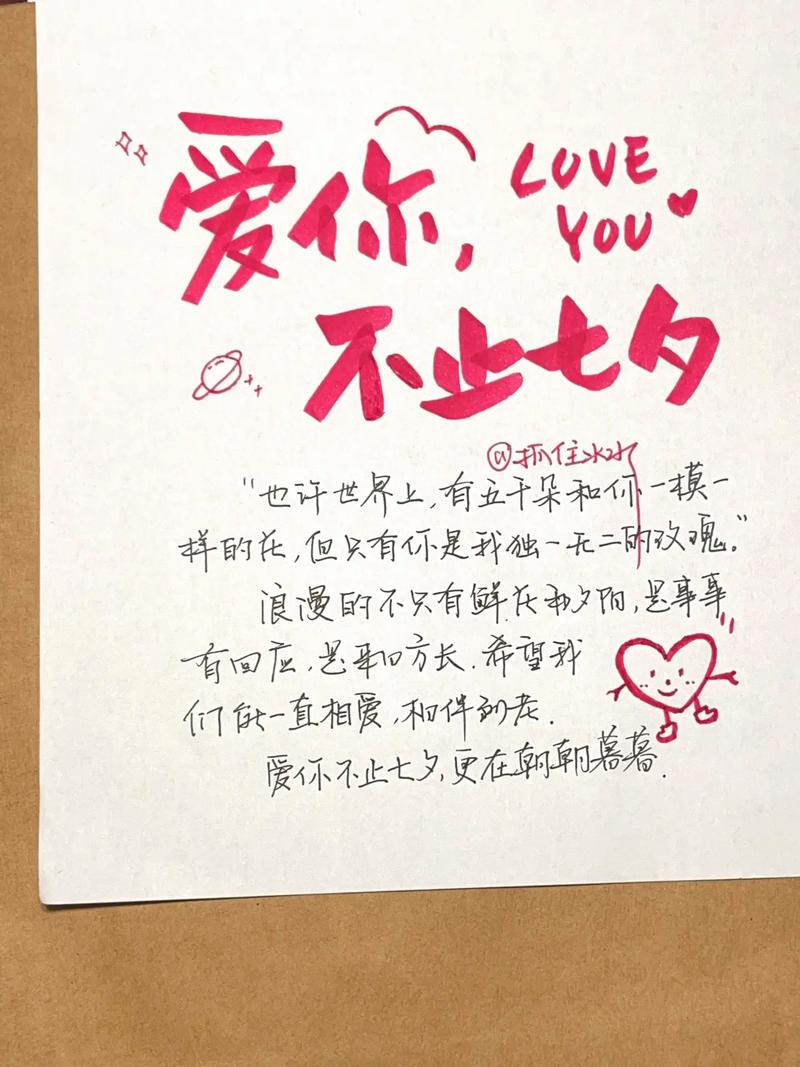 爱你,
LOVE
YOU
不止七夕
@抓住水水
“也许世界上,有五千朵和你一模一
样的花,但只有你是我独一无二的玫瑰。”
浪漫的不只有鲜花和夕阳,是事事
有回应,是来日方长.希望我
们能一直相爱,相伴到老.
爱你不止七夕,更在朝朝暮暮.